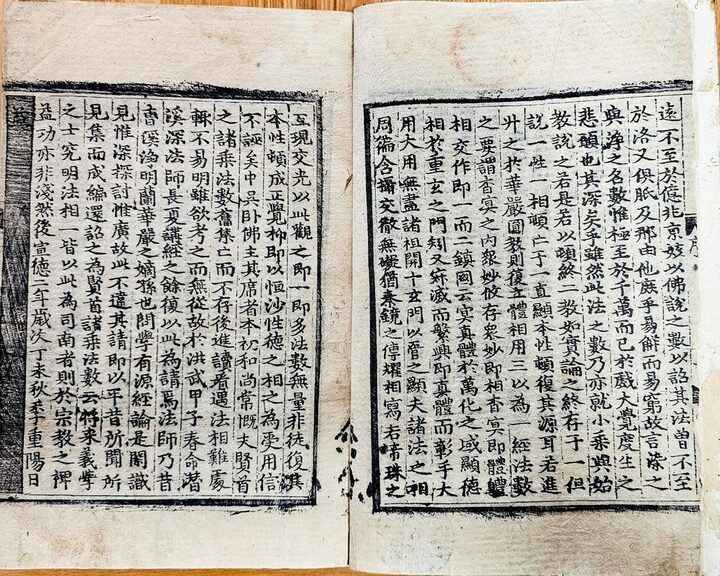 遠不至於億兆京姟以佛說之數以詔其法曾不至
於洛叉俱胝及那由他庶乎易解而易窮故言染之
與淨之名數惟極至於千萬而已於戲大覺度生之
悲願也其深矣乎雖然此法之數乃亦就小乘與始
教說之若是若以頓終二教如實論之終存于一但
說一性一相頓亡于一直顯本性頓復其源耳若進
升之於華嚴圓教則復體相用三以為一經法數
之要謂杳冥之內衆妙攸存衆妙即相杳冥即體體
相交作即一而二鎮國云冥真體於萬化之域顯德
相於重玄之門知又滅而繁興即真體而彰乎大
用大用無盡諸祖開十玄門以管之顯夫諸法之相
周徧含攝交徹無礙猶秦鏡之傳耀相寫若帝珠之
序
互現交光以此觀之即一即多法數無量非徒復其
本性頓成正覺抑即以恒沙性德之相之為受用信
不誣矣中吳卧佛主其席者本初和尚常慨夫賢首
之諸乘法數舊集亡而不存後進讀者遇法相難處
輒不易明雖欲考之而無從故於洪武甲子春命潜
溪深法師長夏講經之餘復以此為請焉法師乃昔
古溪海明蘭華嚴之嫡孫也問學有源經論是閑識
見惟深探討惟廣故此不違其請即以平昔所聞所
見集而成編還詔之為賢首諸乘法數云將来義學
之士究明法相一皆以此為司南者則於宗教之裨
益功亦非淺然後宣德二年歲次丁未秋季重陽日